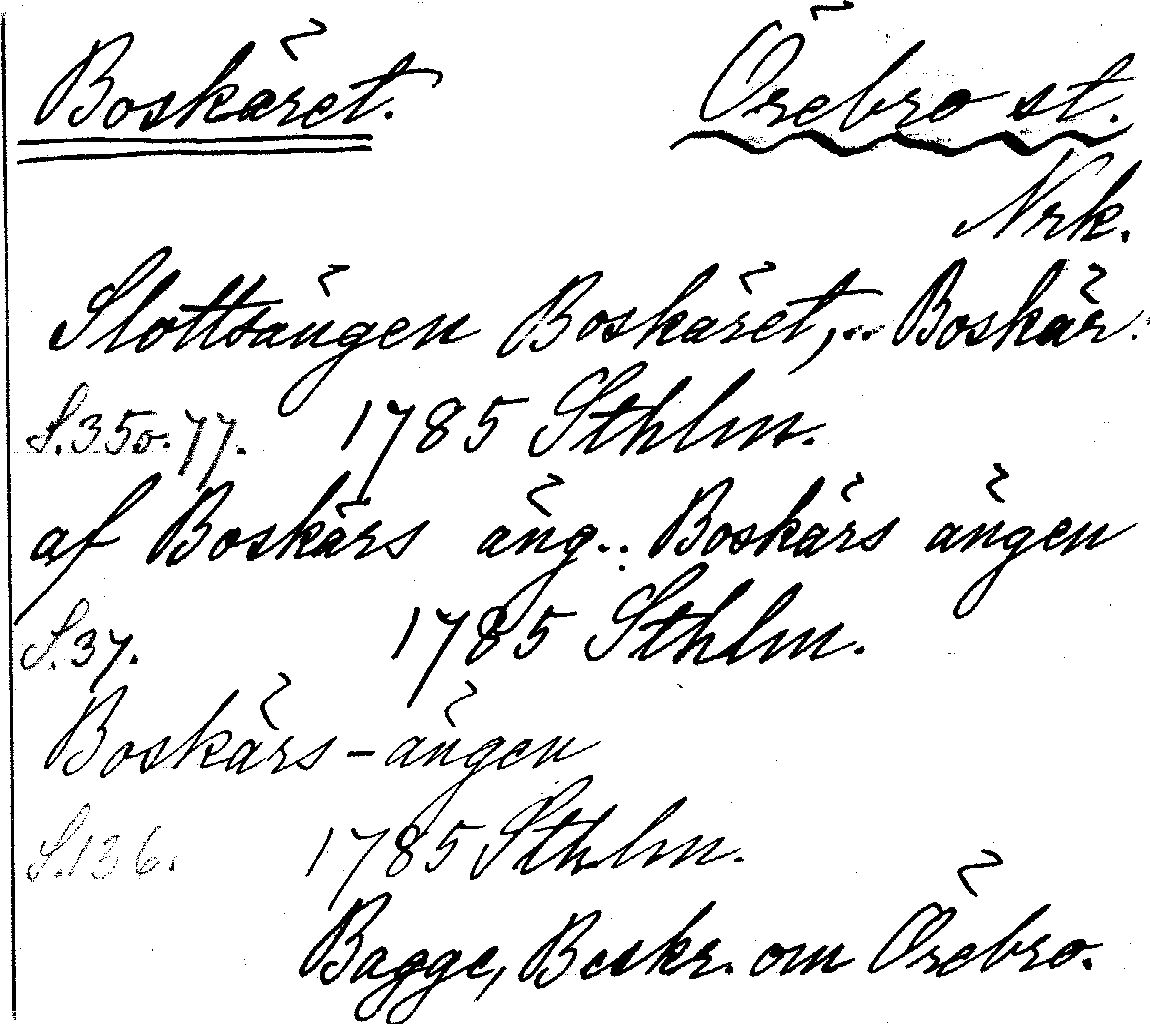 Boskäret. Örebro st.
Nrk.
Slottsängen Boskäret,.. Boskär:
S.35o.77. 1785 Sthlm.
af Boskärs äng.. Boskärs ängen
S.37. 1785 Sthlm.
Boskärs-ängen
S.136. 1785 Sthlm.
Bagge, Beskr. om Örebro.